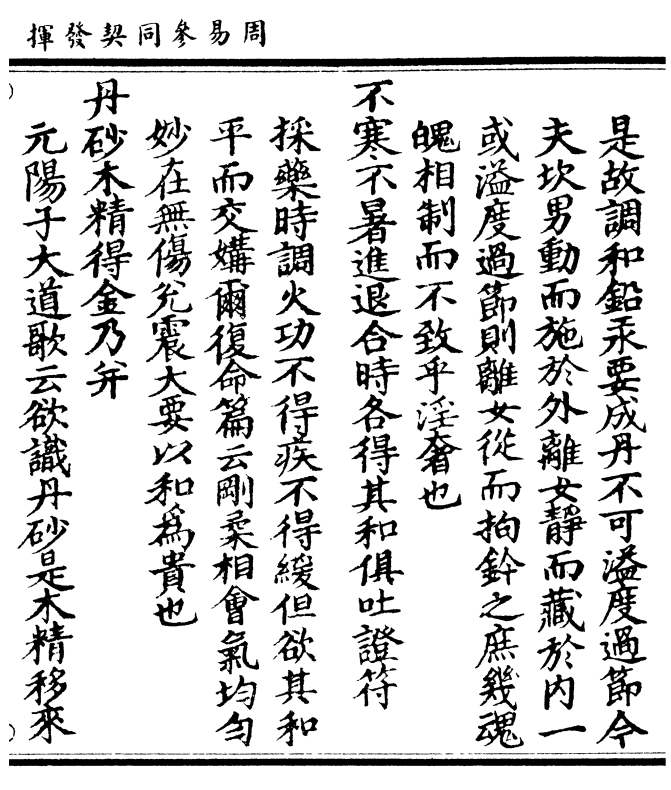 周易參同契發揮
是故調和鉛汞要成丹不可溢度過節今
夫坎男動而施於外離女靜而藏於內一
或溢度過節則離女從而拘鈐之庶幾魂
魄相制而不致乎淫奢也
不寒不暑進退合時各得其和俱吐證符
採藥時調火功不得疾不得緩但欲其和
平而交媾爾復命篇云剛柔相會氣均勻
妙在無傷兊震大要以和爲貴也
丹砂木精得金乃并
元陽子大道歌云欲識丹砂是木精移來